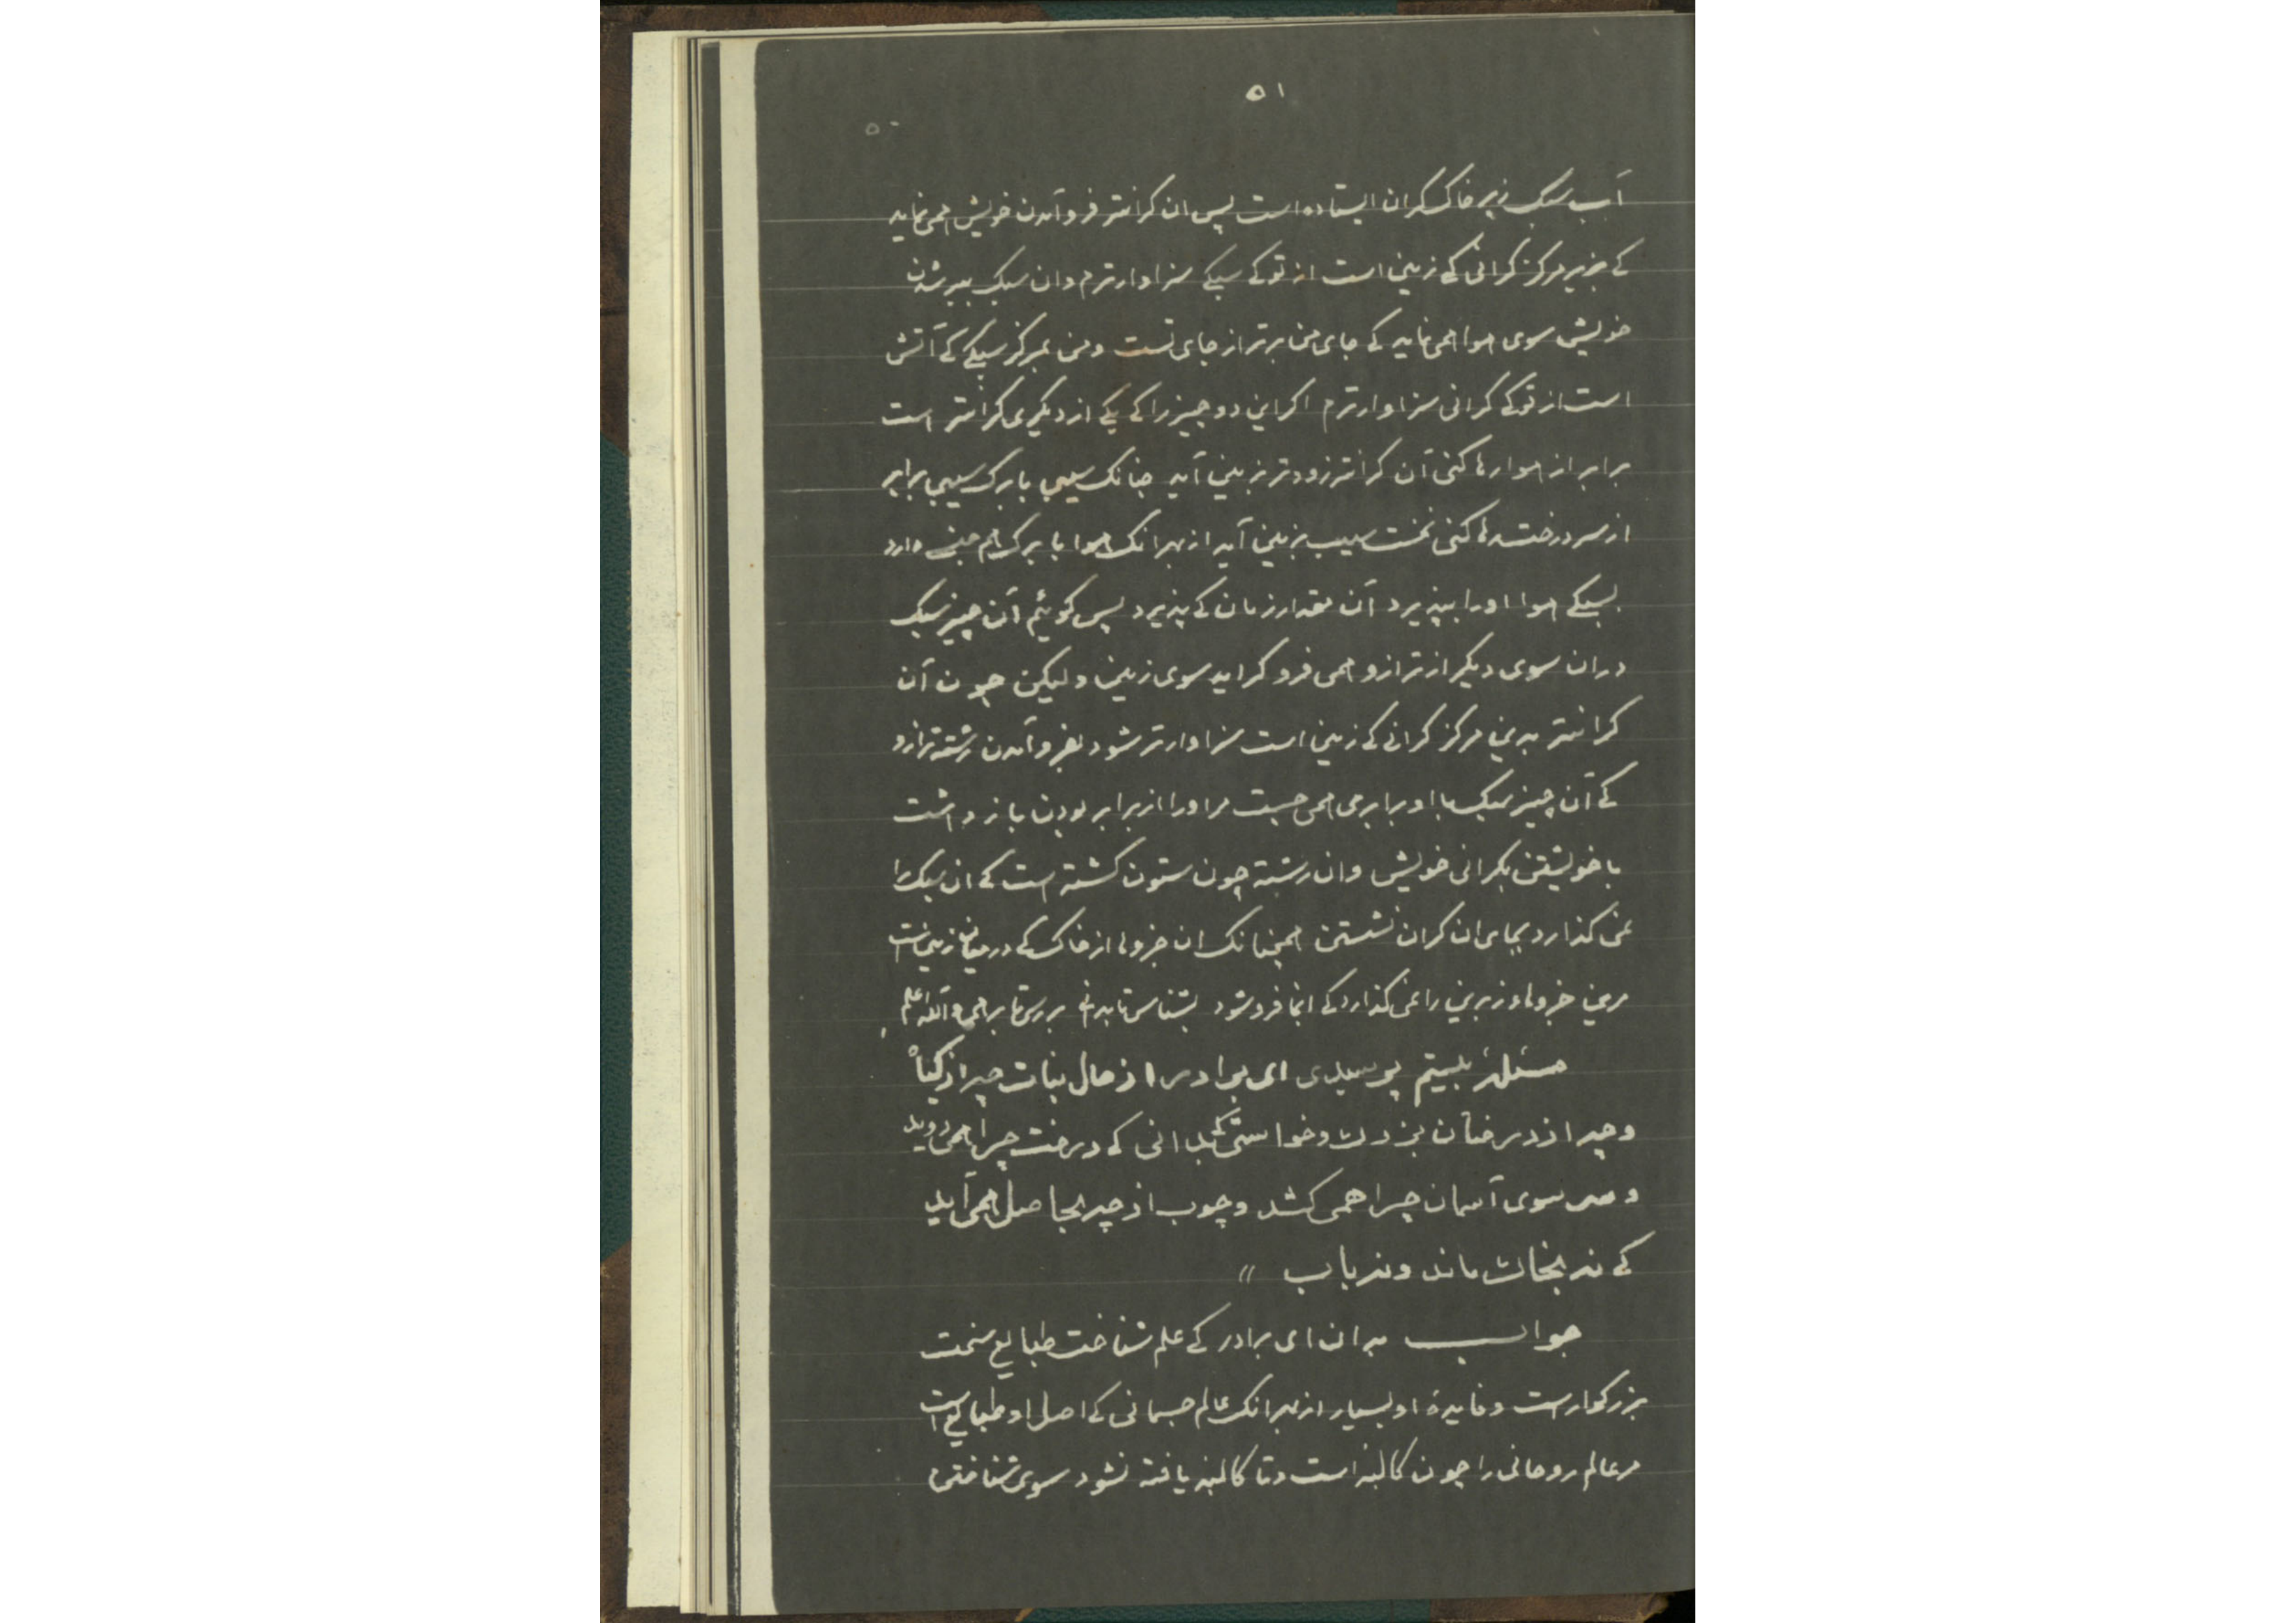 ۵۱
۵۰
آب سبک زیر خاک کران ایستاده است پس ان کرانتر فرو آمدن خویش همی نماید
کے بزیر مرکز کرانی کے زمین است از تو کے سبکے سزاوار ترم وان سبک ببر شدن
خویش سوی هوا همی نماید کے جای من برتر از جای تست ومن بمرکز سبکے کے آتش
است از تو کے کرانی سزاوار ترم اکر این دو چیز را کے یکے از دیکری کرانتر است
برابر از هوا رها کنی آن کرانتر زودتر بزمین آید چنانک سیبی با برک سیبی برابر
از سر درخت رها کنی نخست سیب بزمین آید از بهر انک هوا با برک هم جنسے دارد
بسبکے هوا اورا بپذیرد آن مقدار زمان کے پذیرد پس کوئیم آن چیز سبک
دران سوی دیکر از ترازو همی فرو کراید سوی زمین ولیکن چون آن
کرانتر بدین مرکز کرانے کے زمین است سزاوارتر شود بفرو آمدن رشته ترازو
کے آن چیز سبک با او برابرمی همی جست مراورا از برابر بودن باز داشت
با خویشتن بکرانی خویش وان رشته چون ستون کشته است کے ان سبک را
نمی کذارد بجای ان کران نشستن همچنانک ان جزوها از خاک کے در میان زمینست
مرین جزوهاء زبرین را نمی کذارد کے انجا فروشود بشناس تا بدانے بررس تا برهی والله اعلم
مسئلهٔ بیستم پرسیدی ای برادر از حال نبات چه از کیاه
و چه از درختان بزرک و خواستی کے بدانی کے درخت چرا همی روید
و سر سوی آسمان چرا همی کشد و چوب از چه بجا حاصل همی آید
کے نه بخاک ماند و نه بآب "
جواب بدان ای برادر کے علم شناخت طبایع سخت
بزرکوارست و فایدهٔ او بسیار از بهر انک عالم جسمانی کے اصل او طبایع است
مر عالم روحانی را چون کالبد است و تا کالبد یافته نشود سوی شناختن